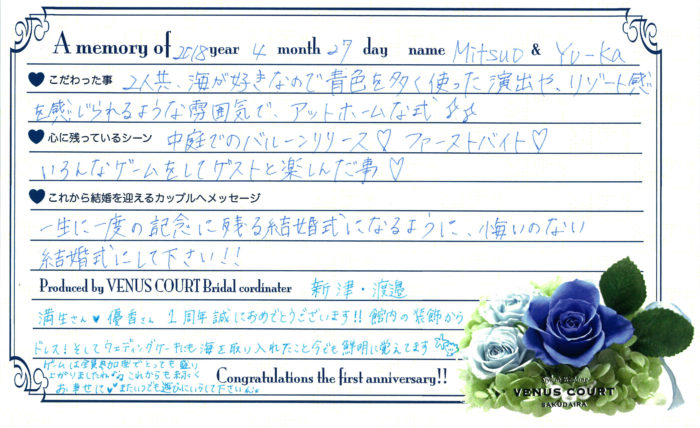 A memory of 2018 year 4 month 27 day name Mitsuo & Yu-ka
こだわった事 2人共、海が好きなので青色を多く使った演出や、リゾート感
を感じられるような雰囲気で、アットホームな式
心に残っているシーン 中庭でのバルーンリリース♡ ファーストバイト♡
いろんなゲームをしてゲストと楽しんだ事♡
これから結婚を迎えるカップルへメッセージ
一生に一度の記念に残る結婚式になるように、悔いのない
結婚式にして下さい!!
Produced by VENUS COURT Bridal cordinater 新津・渡邉
満生さん♥優香さん 1周年誠におめでとうございます!! 館内の装飾から
ドレス!そしてウェディングケーキにも海を取り入れたこと今でも鮮明に覚えてます
ゲームは全員参加型でとっても盛り
上がりましたね♪ これからも末永く
お幸せに♥またいつでも遊びにいらして下さい
Congratulations the first anniversary!!
VENUS COURT
SAKUDAIRA